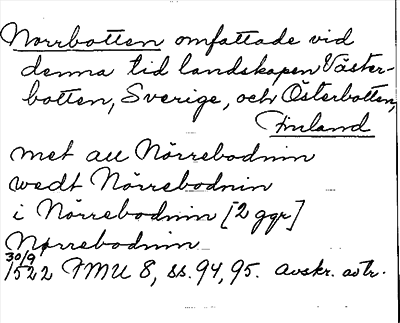 Norrbotten omfattade vid
denna tid landskapen Väster-
botten, Sverige, och Österbotten,
Finland
met au Nörrebodnin
wedt Nörrebodnin
i Nörrebodnin [2 ggr]
Nørrebodnin
30/9 1522 FMU 8, ss. 94, 95. avskr. avtr.